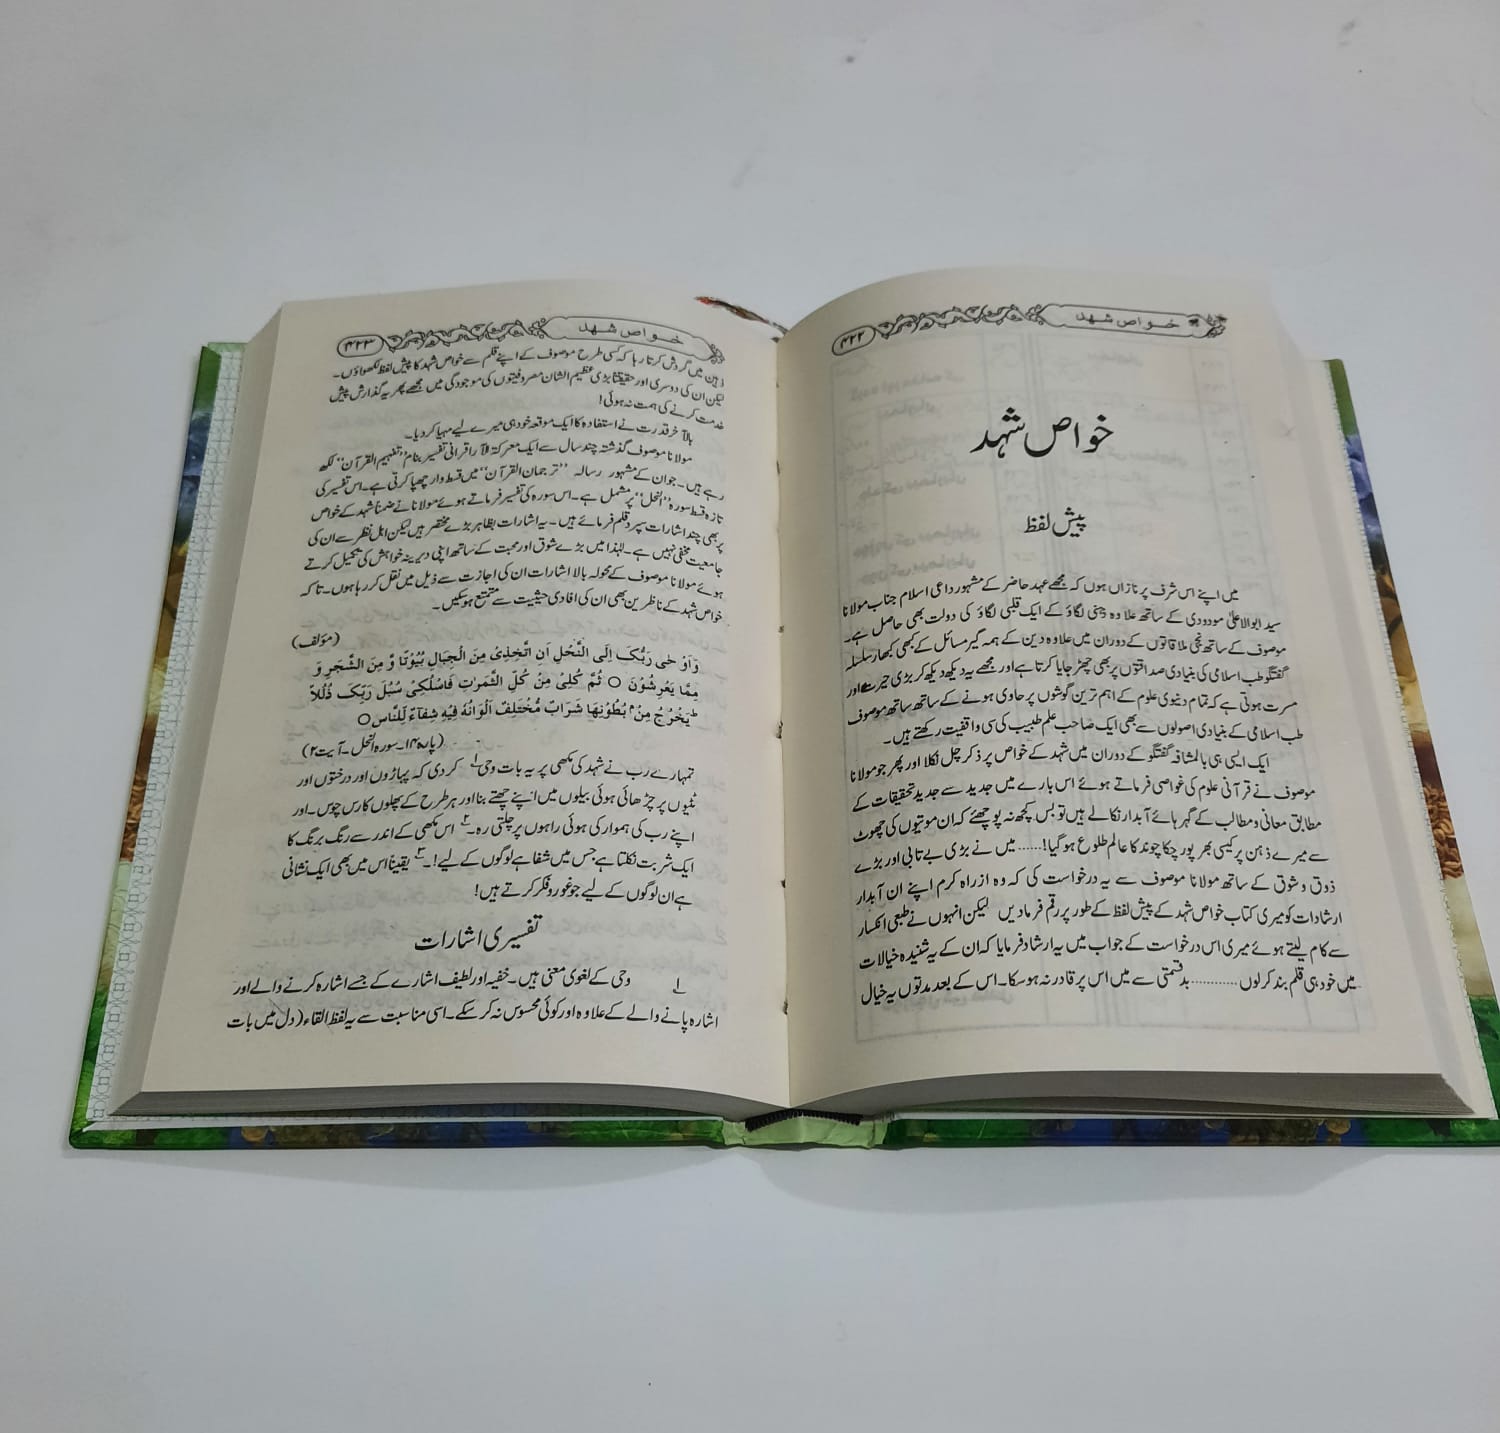 خواص شہد
۴۲۲
خواص شہد
پیش لفظ
میں اپنے اس شرف پر نازاں ہوں کہ مجھے عہد حاضر کے مشہور داعی اسلام جناب مولانا
سید ابوالاعلیٰ مودودی کے ساتھ علاوہ دینی لگاؤ کے ایک قلبی لگاؤ کی دولت بھی حاصل ہے۔
موصوف کے ساتھ نجی ملاقاتوں کے دوران میں علاوہ دین کے ہمہ گیر مسائل کے کبھی کبھار سلسلہ
گفتگو طب اسلامی کی بنیادی صداقتوں پر بھی چھڑ جایا کرتا ہے اور مجھے یہ دیکھ دیکھ کر بڑی حیرت اور
مسرت ہوتی ہے کہ تمام دنیوی علوم کے اہم ترین گوشوں پر حاوی ہونے کے ساتھ ساتھ موصوف
طب اسلامی کے بنیادی اصولوں سے بھی ایک صاحب علم طبیب کی سی واقفیت رکھتے ہیں۔
ایک ایسی ہی بالمشافہ گفتگو کے دوران میں شہد کے خواص پر ذکر چل نکلا اور پھر جو مولانا
موصوف نے قرآنی علوم کی غواصی فرماتے ہوئے اس بارے میں جدید سے جدید تحقیقات کے
مطابق معانی و مطالب کے گہر ہائے آبدار نکالے ہیں تو بس کچھ نہ پوچھئے کہ ان موتیوں کی چھوٹ
سے میرے ذہن پر کیسی بھر پور چکا چوند کا عالم طلوع ہو گیا!...... میں نے بڑی بے تابی اور بڑے
ذوق و شوق کے ساتھ مولانا موصوف سے یہ درخواست کی کہ وہ از راہ کرم اپنے ان آبدار
ارشادات کو میری کتاب خواص شہد کے پیش لفظ کے طور پر رقم فرما دیں لیکن انہوں نے طبعی انکسار
سے کام لیتے ہوئے میری اس درخواست کے جواب میں یہ ارشاد فرمایا کہ ان کے یہ شنیدہ خیالات
میں خود ہی قلم بند کر لوں ............ بدقسمتی سے میں اس پر قادر نہ ہو سکا۔ اس کے بعد مدتوں یہ خیال
خواص شہد
۴۲۳
ذہن میں گردش کرتا رہا کہ کسی طرح موصوف کے اپنے قلم سے خواص شہد کا پیش لفظ لکھواؤں۔
لیکن ان کی دوسری اور حقیقتا بڑی عظیم الشان مصروفیتوں کی موجودگی میں مجھے پھر یہ گذارش پیش
خدمت کرنے کی ہمت نہ ہوئی!
بالآخر قدرت نے استفادہ کا ایک موقعہ خود ہی میرے لیے مہیا کر دیا۔
مولانا موصوف گذشتہ چند سال سے ایک معرکۃ الآرا قرآنی تفسیر بنام ''تفہیم القرآن'' لکھ
رہے ہیں۔ جو ان کے مشہور رسالہ ''ترجمان القرآن'' میں قسط وار چھپا کرتی ہے۔ اس تفسیر کی
تازہ قسط سورہ ''النحل'' پر مشتمل ہے۔ اس سورہ کی تفسیر فرماتے ہوئے مولانا نے ضمنا شہد کے خواص
پر بھی چند اشارات سپرد قلم فرمائے ہیں۔ یہ اشارات بظاہر بڑے مختصر ہیں لیکن اہل نظر سے ان کی
جامعیت مخفی نہیں ہے۔ لہٰذا میں بڑے شوق اور محبت کے ساتھ اپنی دیرینہ خواہش کی تکمیل کرتے
ہوئے مولانا موصوف کے محولہ بالا اشارات ان کی اجازت سے ذیل میں نقل کر رہا ہوں۔ تاکہ
خواص شہد کے ناظرین بھی ان کی افادی حیثیت سے متمتع ہو سکیں۔
(مؤلف)
وَاَوْحٰی رَبُّکَ اِلَی النَّحْلِ اَنِ اتَّخِذِیْ مِنَ الْجِبَالِ بُیُوْتًا وَّ مِنَ الشَّجَرِ وَ
مِمَّا یَعْرِشُوْنَ ○ ثُمَّ کُلِیْ مِنْ کُلِّ الثَّمَرٰتِ فَاسْلُکِیْ سُبُلَ رَبِّکَ ذُلُلاً
یَخْرُجُ مِنْۢ بُطُوْنِهَا شَرَابٌ مُّخْتَلِفٌ اَلْوَانُهٗ فِیْهِ شِفَآءٌ لِّلنَّاسِ ○
(پارہ ۱۴۔ سورہ النحل۔ آیت ۲)
تمہارے رب نے شہد کی مکھی پر یہ بات وحی ۱؎ کر دی کہ پہاڑوں اور درختوں اور
ٹٹیوں پر چڑھائی ہوئی بیلوں میں اپنے چھتے بنا اور ہر طرح کے پھلوں کا رس چوس۔ اور
اپنے رب کی ہموار کی ہوئی راہوں پر چلتی رہ۔ ۲؎ اس مکھی کے اندر سے رنگ برنگ کا
ایک شربت نکلتا ہے جس میں شفا ہے لوگوں کے لیے!۔ ۳؎ یقیناً اس میں بھی ایک نشانی
ہے ان لوگوں کے لیے جو غور و فکر کرتے ہیں!
تفسیری اشارات
۱؎ وحی کے لغوی معنی ہیں۔ خفیہ اور لطیف اشارے کے جسے اشارہ کرنے والے اور
اشارہ پانے والے کے علاوہ اور کوئی محسوس نہ کر سکے۔ اسی مناسبت سے یہ لفظ القاء (دل میں بات